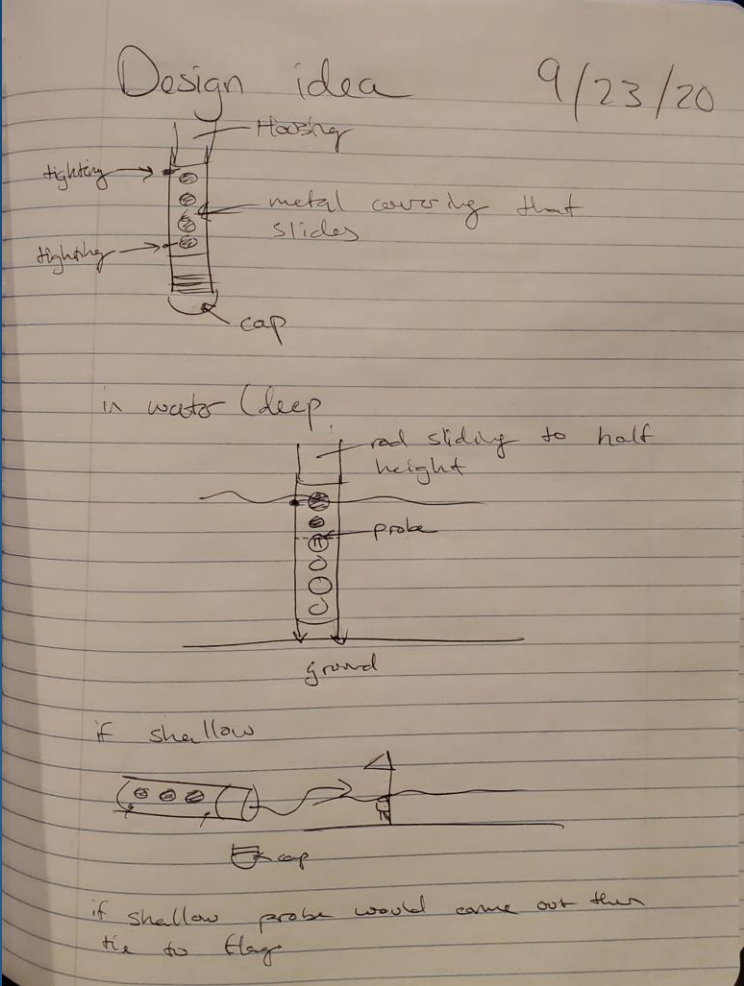 Design idea
9/23/20
Housing
tighting
metal covering that
slides
tighting
cap
in water (deep
rod sliding to half
height
probe
ground
if shallow
cap
if shallow probe would come out then
tie to flag